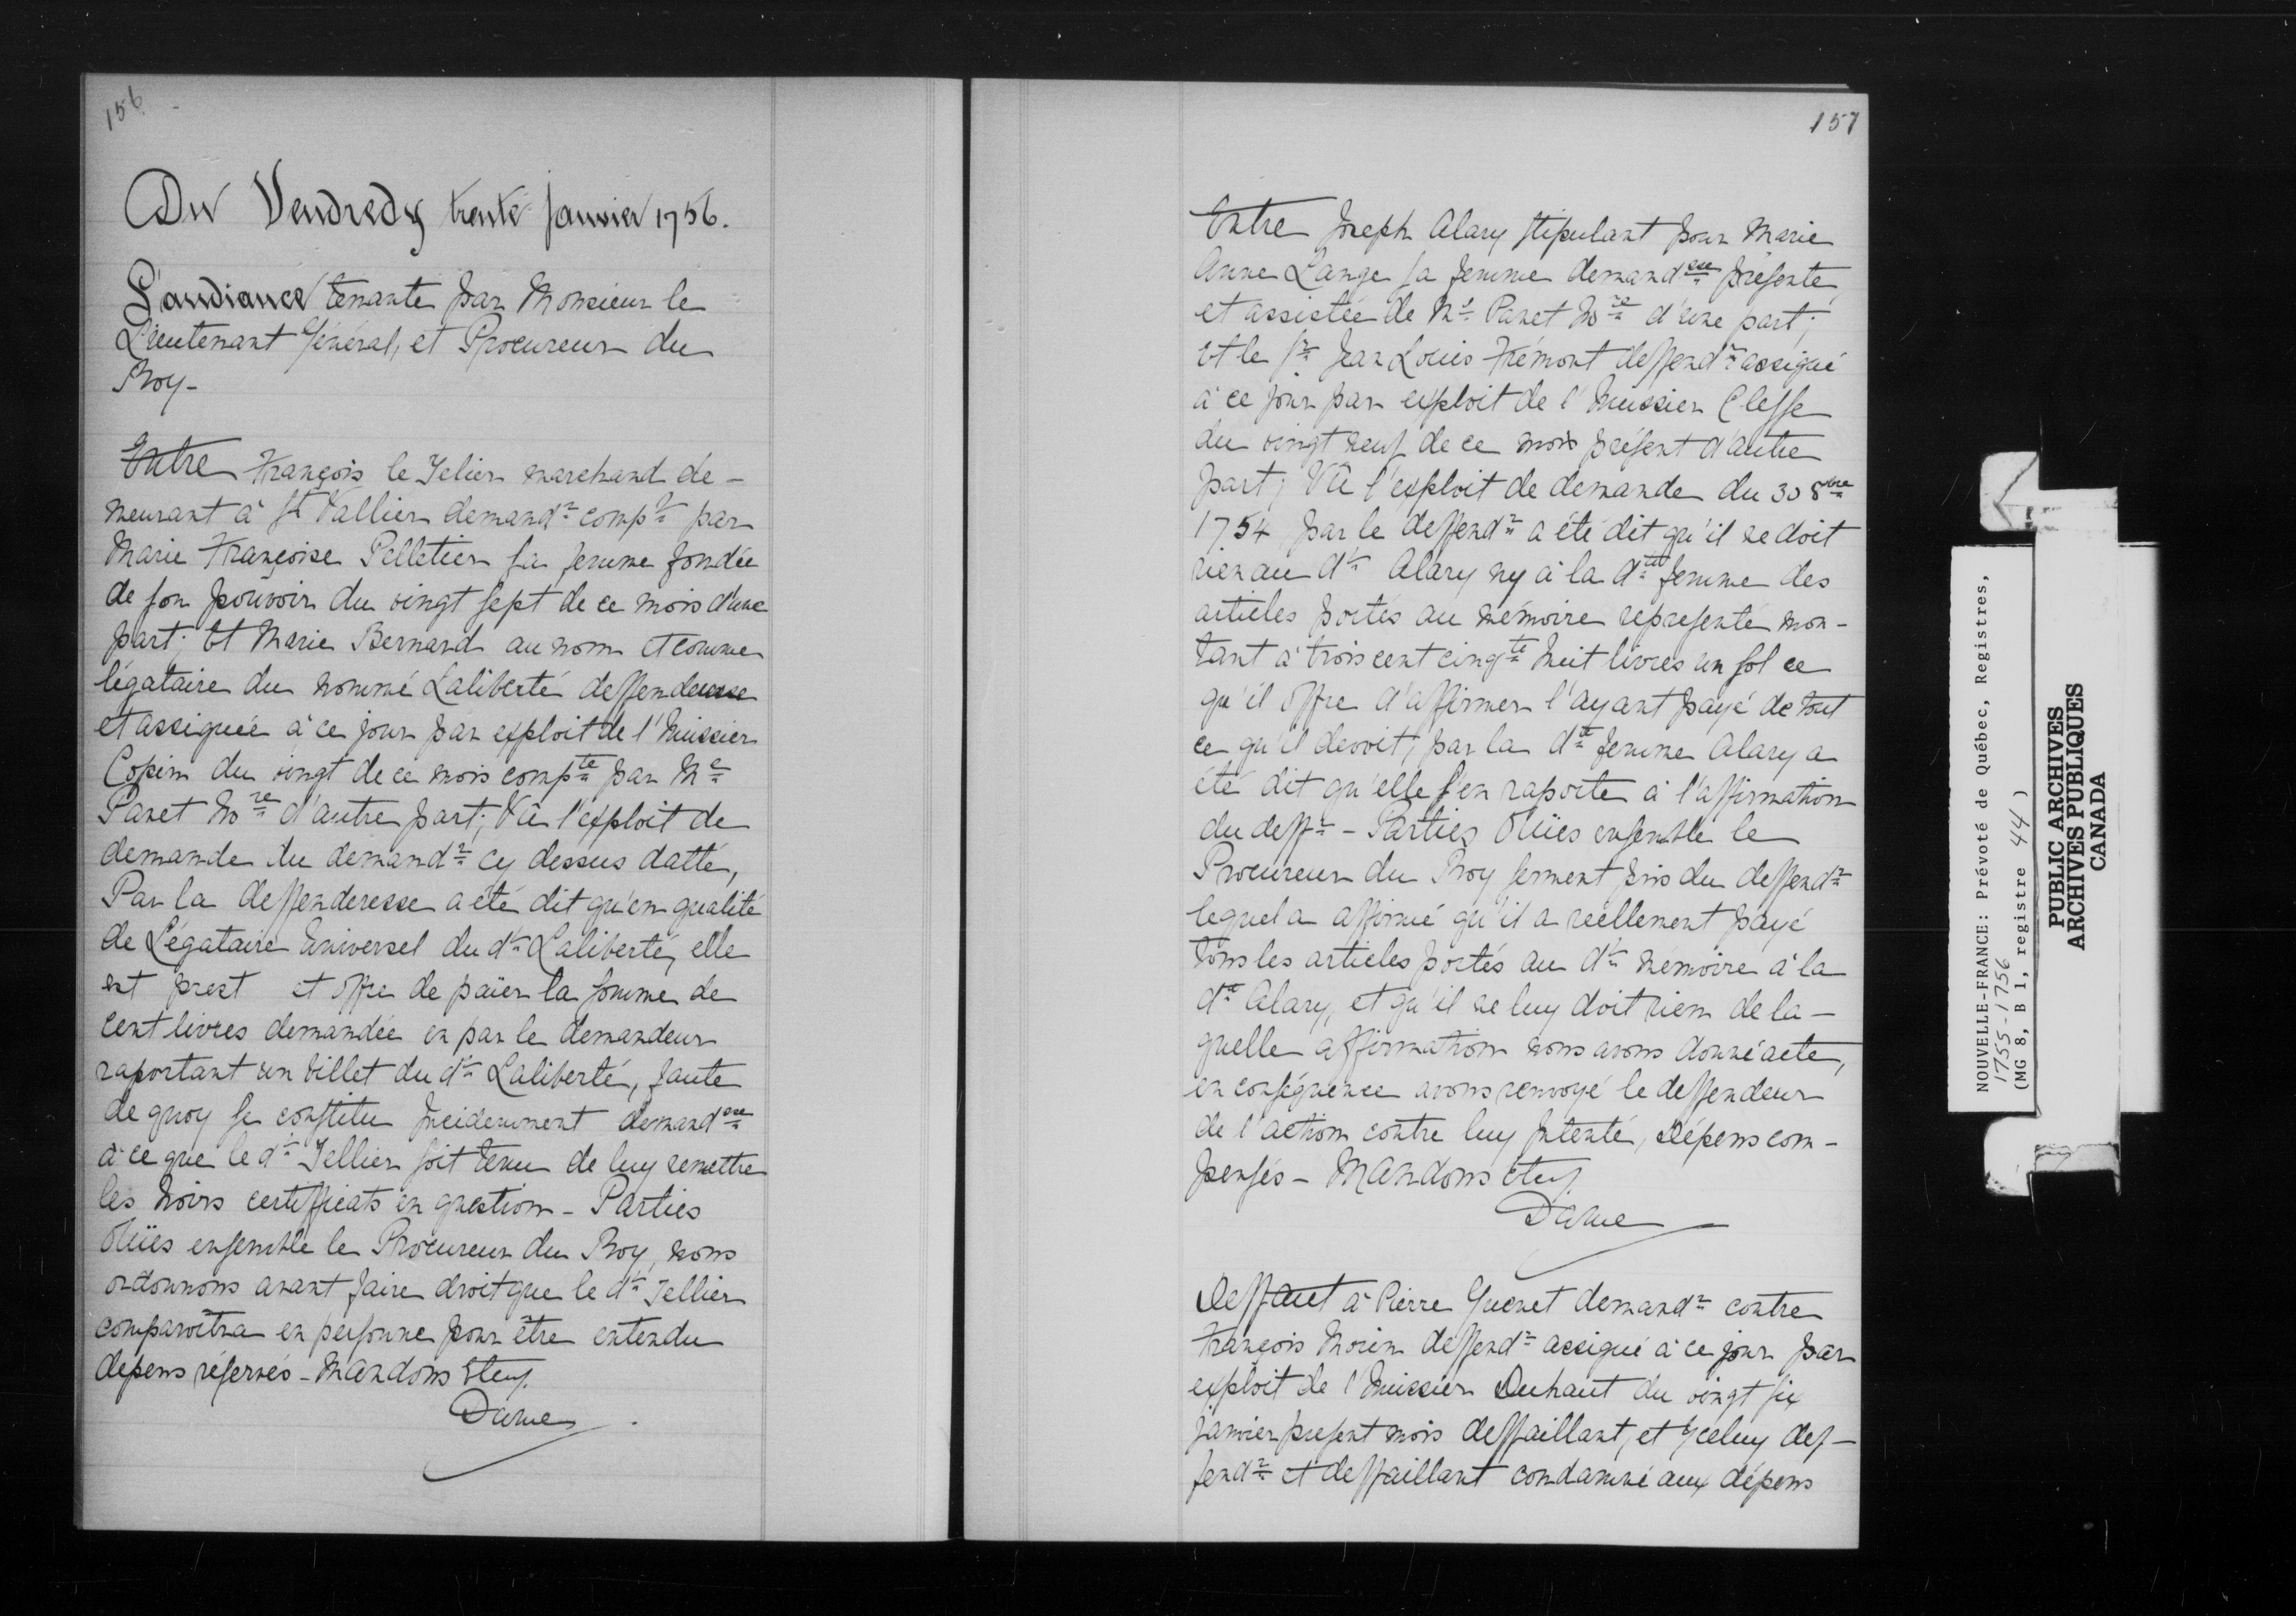 156
Du Vendredy trente Janvier 1756.
L'audiance tenante par Monsieur le
Lieutenant Général, et Procureur du
Roy-
Entre François le Telier marchand de-
meurant à St Vallier demandr compt par
Marie Françoise Pelletier sa femme fondée
de son pouvoir du vingt sept de ce mois d'une
part; Et Marie Bernard au nom et comme
légataire du nommé Laliberté deffenderesse
et assignée à ce jour par exploit de l'huissier
Copin du vingt de ce mois compte par Me
Panet Nore d'autre part; Vû l'exploit de
demande du demandr cy dessus datté,
Par la deffenderesse a été dit qu'en qualité
de Légataire Universel du dt Laliberté, elle
est prest et offre de païer la somme de
cent livres demandée en par le demandeur
raportant un billet du dt Laliberté, faute
de quoy se constitue Incidemment demandese
à ce que le dt Tellier soit tenu de luy remettre
les noirs certifficats en question - Parties
Oüies ensemble le Procureur du Roy, nous
ordonnons avant faire droit que le dt Tellier
comparoîtra en personne pour être entendu
depens réservés - Mandons Etc.
Daine
157
Entre Joseph Alary stipulant pour Marie
Anne Lange sa femme demandese présente
et assistée de Me Panet Nore d'une part;
Et le Sr Jean Louis Frémont deffendr assigné
à ce jour par exploit de l'huissier Clesse
du vingt neuf de ce mois présent d'autre
part; Vû l'exploit de demande du 30 8bre
1754 par le deffendr a été dit qu'il ne doit
rien au dt Alary ny à la dte femme des
articles portés au mémoire representé mon-
tant à trois cent cinqte huit livres un sol ce
qu'il offre d'affirmer l'ayant payé de tout
ce qu'il devoit, par la dte femme Alary a
été dit qu'elle s'en raporte à l'affirmation
du deffr - Parties Oüies ensemble le
Procureur du Roy serment pris du deffendr
lequel a affirmé qu'il a reellement payé
tous les articles portés au dt mémoire à la
dte Alary, et qu'il ne luy doit rien de la-
quelle affirmation nous avons donné acte,
en conséquence avons renvoyé le deffendeur
de l'action contre luy Intenté, Dépens com-
pensés - Mandons Etc.
Daine
Deffaut à Pierre Guenet demandr contre
François Morin deffendr assigné à ce jour par
exploit de l'huissier Duhaut du vingt six
janvier present mois deffaillant, et Yceluy def-
fendr et deffaillant condamné aux dépens
NOUVELLE-FRANCE: Prévoté de Québec, Registres,
1755-1756
(MG 8, B 1, registre 44)
PUBLIC ARCHIVES
ARCHIVES PUBLIQUES
CANADA